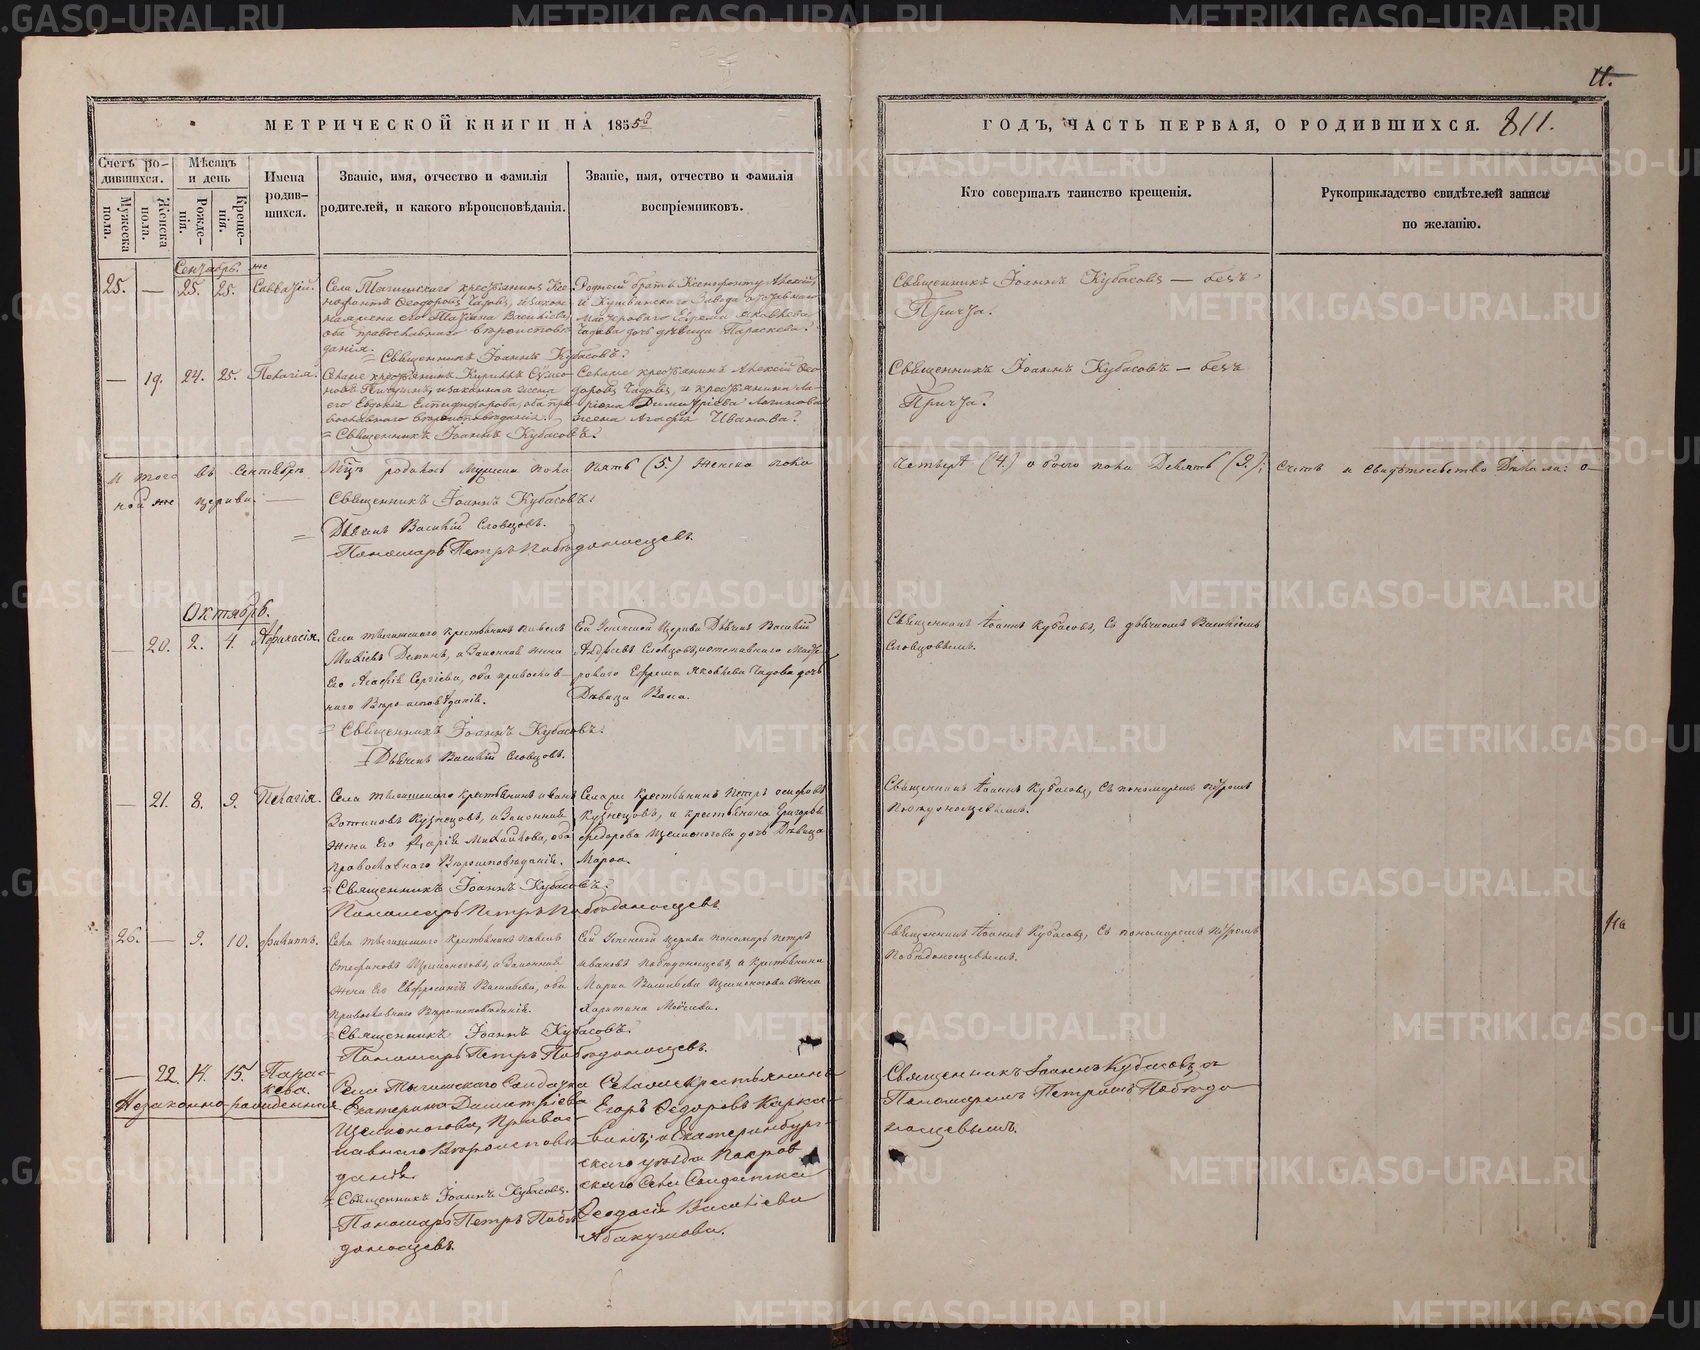 11.
МЕТРИЧЕСКОЙ КНИГИ НА 1855й
ГОДЪ, ЧАСТЬ ПЕРВАЯ, О РОДИВШИХСЯ. 811.
Счетъ родившихся.
Мужеска пола.
Женска пола.
Мѣсяцъ и день
Рожденія.
Крещенія.
Имена родившихся.
Званіе, имя, отчество и фамилія
родителей, и какого вѣроисповѣданія.
Званіе, имя, отчество и фамилія
воспріемниковъ.
Кто совершалъ таинство крещенія.
Рукоприкладство свидѣтелей записи
по желанію.
Сентябрь.
25. — 25. 25. Савватій.
Села Тыгишскаго крестьянинъ Ксе-
нофонтъ Ѳеодоровъ Чадовъ, и закон-
ная жена его Татіана Васильева,
оба православнаго вѣроисповѣ-
данія.
= Священникъ Іоаннъ Кубасовъ.
Родной братъ Ксенофонту Алексѣй,
дочь дѣвица Параскева.
Священникъ Іоаннъ Кубасовъ — безъ
Причта.
— 19. 24. 25. Пелагія.
его Евдокія Елпидифорова, оба пра-
вославнаго вѣроисповѣданія.
= Священникъ Іоаннъ Кубасовъ.
Селаже крестьянинъ Алексѣй Ѳео-
доровъ Чадовъ, и крестьянина Ла-
ріона Димитріева Логинова
жена Агафія Иванова.
Священникъ Іоаннъ Кубасовъ — безъ
Причта.
И того въ Сентябрѣ Мцѣ родилось Мужеска пола пять (5.) Женска пола
Четыре (4.) обоего пола Девять (9.);
Священникъ Іоаннъ Кубасовъ.
Дьячекъ Василій Словцовъ.
Пономарь Петръ Побѣдоносцевъ.
Октябрь.
— 20. 2. 4. Аѳанасія.
Села Тыгишскаго крестьянинъ
Деминъ, и Законная жена
Его Агафія Сергіева, оба православ-
наго Вѣроисповѣданія.
= Священникъ Іоаннъ Кубасовъ.
Дьячекъ Василій Словцовъ.
Сей Успенской Церкви Дьячекъ Василій
Андреевъ Словцовъ, и отставнаго Масте-
роваго Ефрема Яковлева Чадова дочь
Дѣвица
Священникъ Іоаннъ Кубасовъ, съ дьячкомъ Василіемъ
Словцовымъ.
— 21. 8. 9. Пелагія.
Села Тыгишскаго Крестьянинъ Иванъ
Кузнецовъ, и Законная
Жена Его Дарія Михайлова, оба
Православнаго Вѣроисповѣданія.
= Священникъ Іоаннъ Кубасовъ.
Пономарь Петръ Побѣдоносцевъ.
Селаже Крестьянинъ Петръ Осиповъ
Кузнецовъ, и крестьянина Григорья
Федорова Щелконогова дочь Дѣвица
Марѳа.
Священникъ Іоаннъ Кубасовъ, съ пономаремъ Петромъ
Побѣдоносцевымъ.
26. — 9. 10. Филиппъ.
Села Тыгишскаго Крестьянинъ Павелъ
Стефановъ Щелконоговъ, и Законная
Жена Его Евфросинія Васильева, оба
Православнаго Вѣроисповѣданія.
= Священникъ Іоаннъ Кубасовъ.
Пономарь Петръ Побѣдоносцевъ.
Сей Успенской Церкви пономарь Петръ
Ивановъ Побѣдоносцевъ, и Крестьянина
Марка Васильева Щелконогова Жена
Священникъ Іоаннъ Кубасовъ, съ пономаремъ Петромъ
Побѣдоносцевымъ.
— 22. 14. 15. Парас-
кева.
Незаконно-рожденная
Села Тыгишскаго Солдатка
Екатерина Димитріева
Щелконогова, Правос-
лавнаго Вѣроисповѣ-
данія.
= Священникъ Іоаннъ Кубасовъ.
Пономарь Петръ Побѣ-
доносцевъ.
Селаже крестьянинъ
Егоръ Ѳедоровъ Карка-
Екатеринбург-
скаго уѣзда Покров-
скаго Села Солдатка
Ѳеодосія Васильева
Абакумова.
Священникъ Іоаннъ Кубасовъ съ
Пономаремъ Петромъ Побѣдо-
носцевымъ.
METRIKI.GASO-URAL.RU